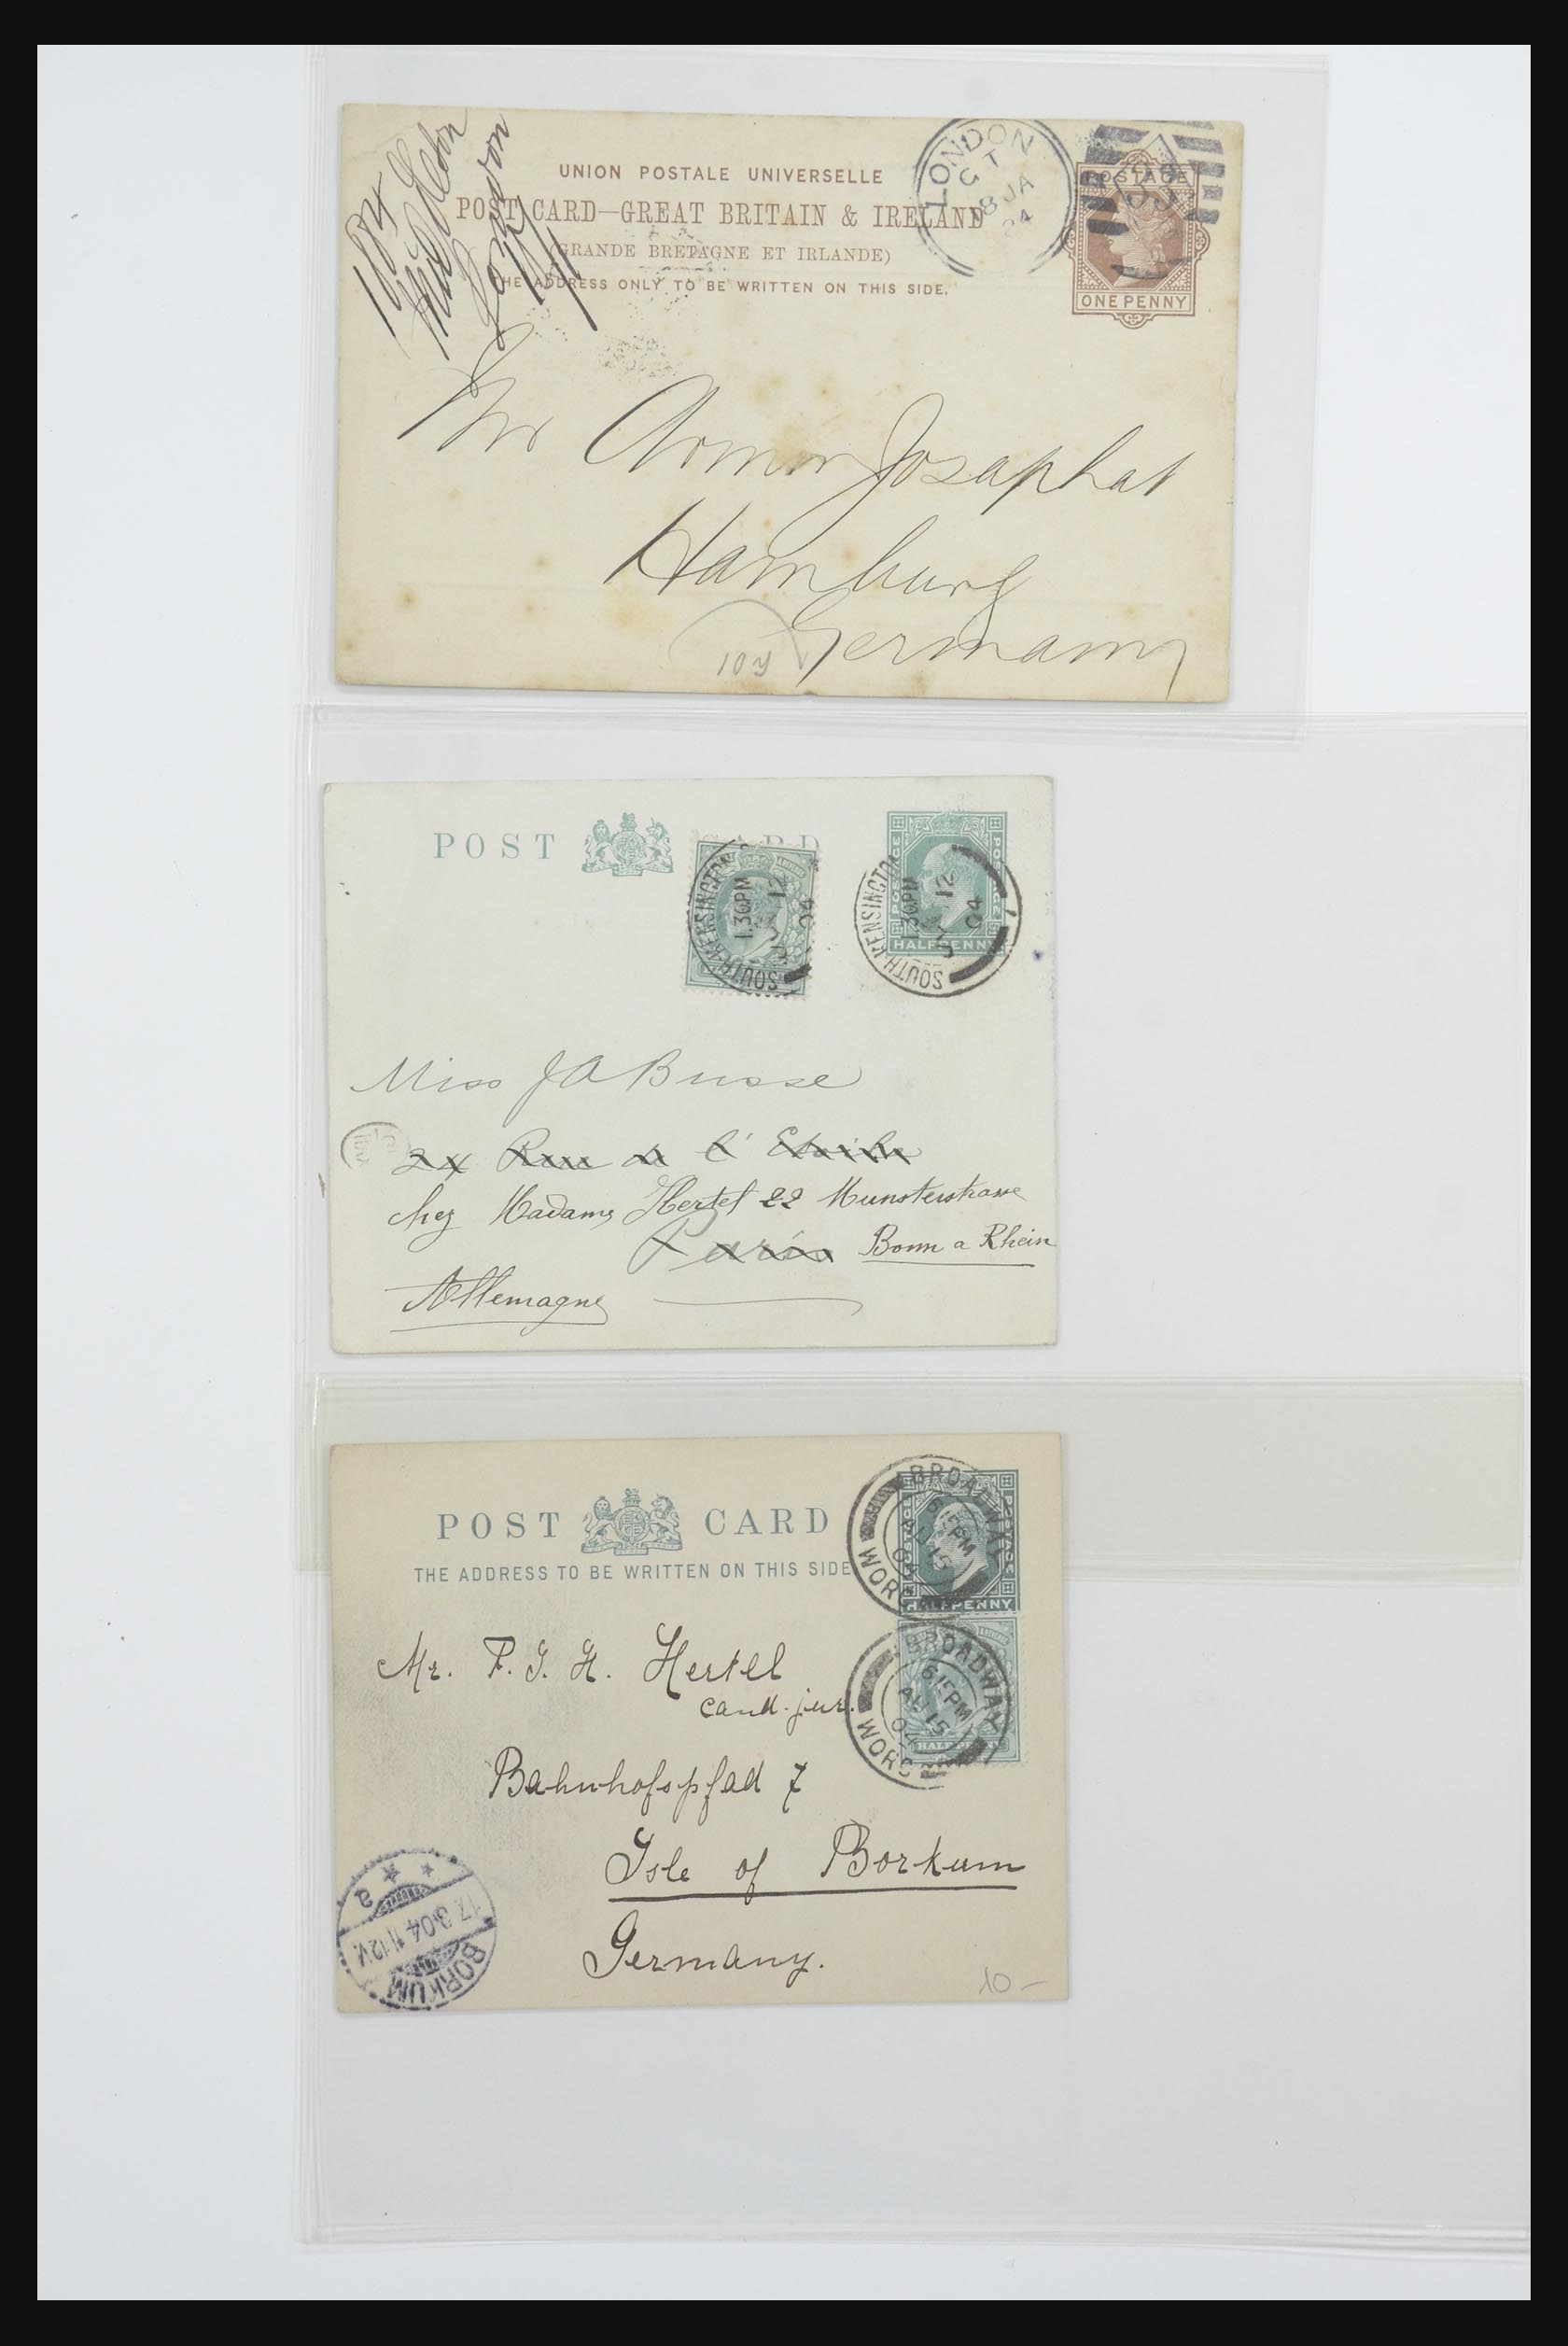 1884
Middleton
London
UNION POSTALE UNIVERSELLE
POST CARD—GREAT BRITAIN & IRELAND
(GRANDE BRETAGNE ET IRLANDE)
THE ADDRESS ONLY TO BE WRITTEN ON THIS SIDE.
LONDON
8 JA
84
POSTAGE
ONE PENNY
Josaphat
Hamburg
Germany
POST CARD
SOUTH KENSINGTON
1.30PM
12
04
HALFPENNY
SOUTH KENSINGTON
1.30PM
12
04
Miss J A Busse
Rue de l'Etoile
chez Madame Hertel 22 Munsterstrasse
Paris Bonn a Rhein
Allemagne
POST CARD
THE ADDRESS TO BE WRITTEN ON THIS SIDE
BROADWAY
6 15PM
AU 15
04
WORC
POSTAGE
HALFPENNY
BROADWAY
6 15PM
AU 15
04
WORC
Mr. F. J. H. Hertel
cand. jur.
Bahnhofspfad 7
Isle of Borkum
Germany.
BORKUM
17.8.04.11-12V.
a
10-